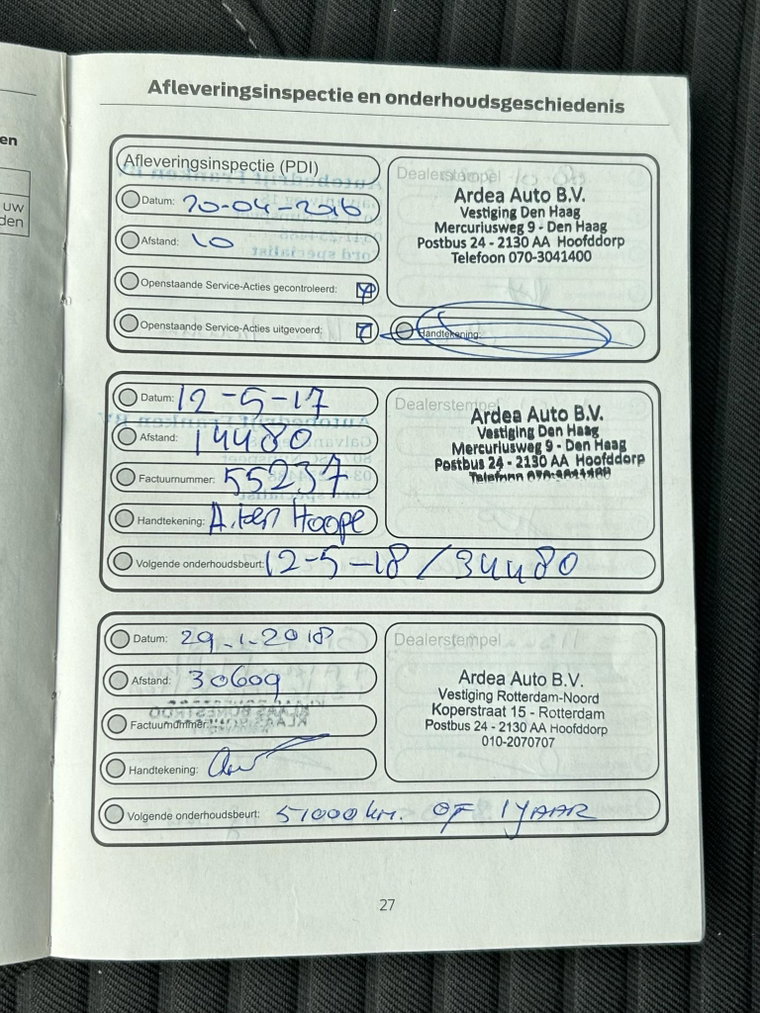 en
uw
den
Afleveringsinspectie en onderhoudsgeschiedenis
Afleveringsinspectie (PDI)
Datum: 20-04-2016
Afstand: 10
Openstaande Service-Acties gecontroleerd:
Openstaande Service-Acties uitgevoerd:
Dealerstempel
Ardea Auto B.V.
Vestiging Den Haag
Mercuriusweg 9 - Den Haag
Postbus 24 - 2130 AA Hoofddorp
Telefoon 070-3041400
Handtekening:
Datum: 12-5-17
Afstand: 14480
Factuurnummer: 55237
Handtekening: A. ten Hoope
Dealerstempel
Ardea Auto B.V.
Vestiging Den Haag
Mercuriusweg 9 - Den Haag
Postbus 24 - 2130 AA Hoofddorp
Telefoon 070-3041400
Volgende onderhoudsbeurt: 12-5-18 / 34480
Datum: 29.1.2018
Afstand: 30609
Factuurnummer:
Handtekening:
Dealerstempel
Ardea Auto B.V.
Vestiging Rotterdam-Noord
Koperstraat 15 - Rotterdam
Postbus 24 - 2130 AA Hoofddorp
010-2070707
Volgende onderhoudsbeurt: 51000 km. OF 1 JAAR
27